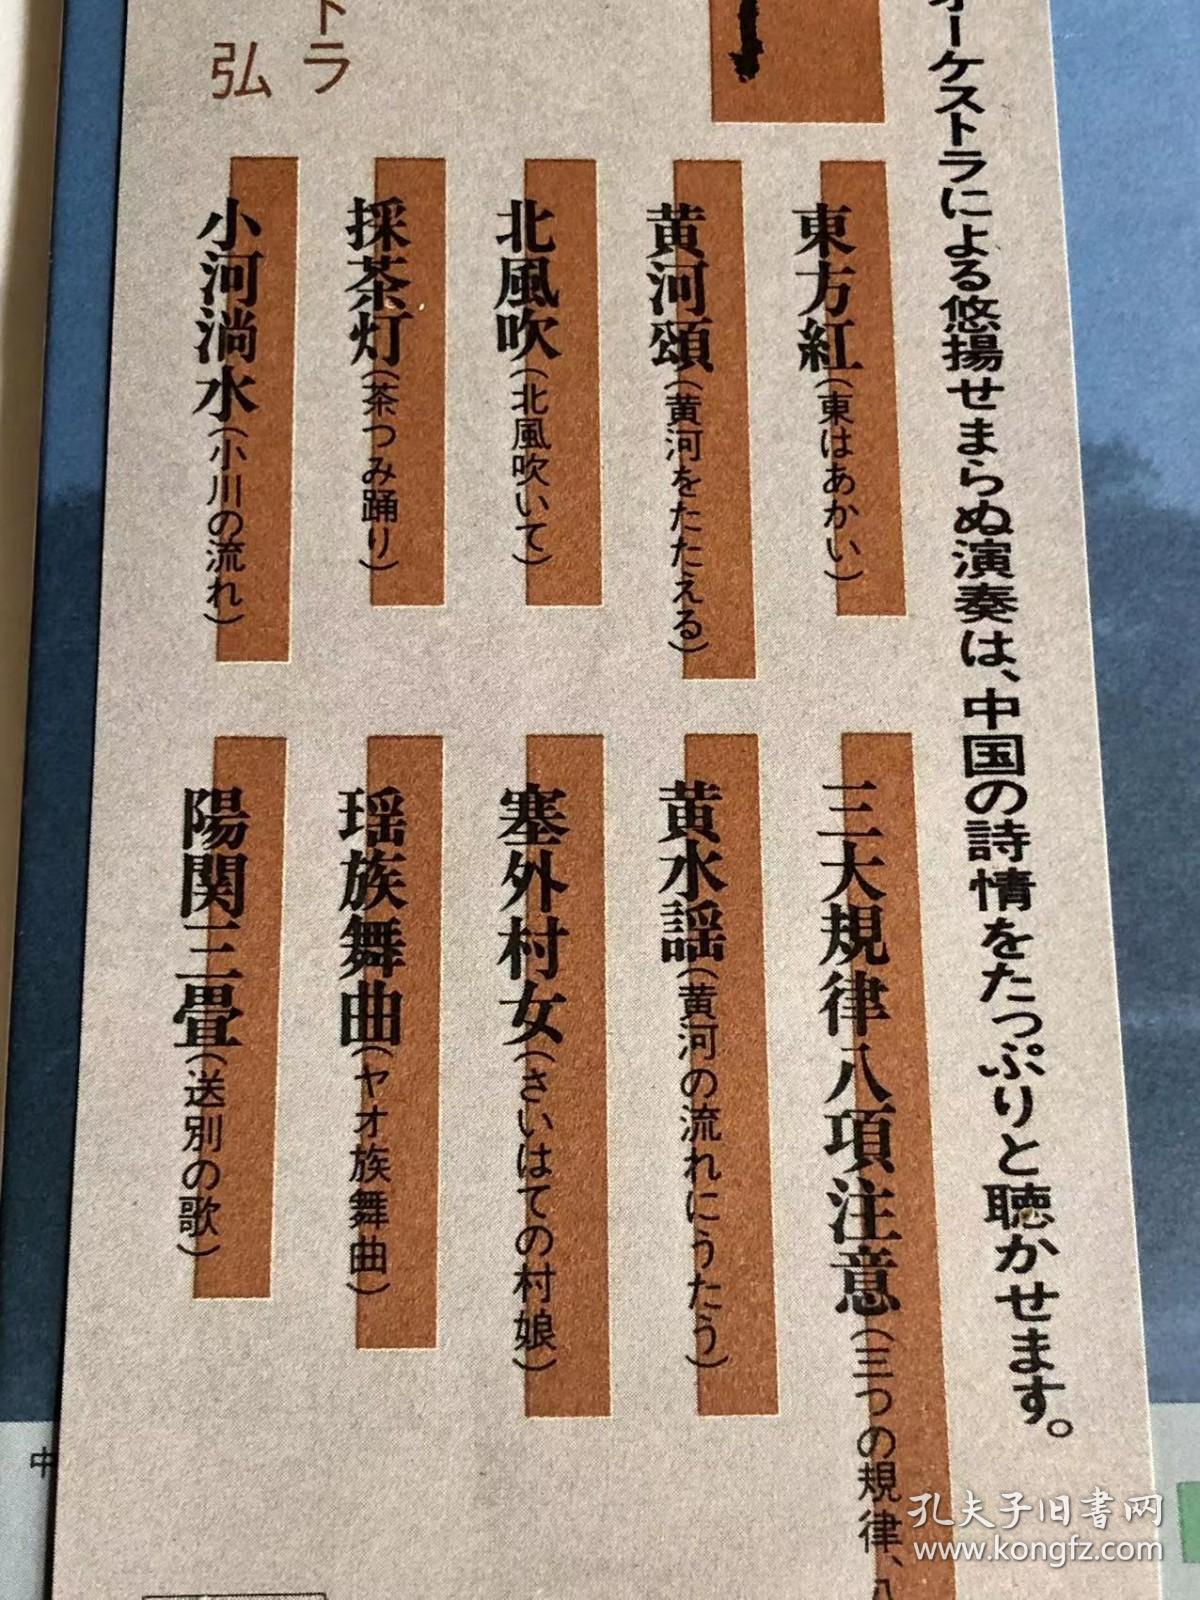 オーケストラによる悠揚せまらぬ演奏は、中国の詩情をたっぷりと聴かせます。
東方紅(東はあかい)
黄河頌(黄河をたたえる)
北風吹(北風吹いて)
採茶灯(茶つみ踊り)
小河淌水(小川の流れ)
三大規律八項注意(三つの規律、八
黄水謡(黄河の流れにうたう)
塞外村女(さいはての村娘)
瑶族舞曲(ヤオ族舞曲)
陽関三畳(送別の歌)
トラ
弘
中
孔夫子旧书网
www.kongfz.com